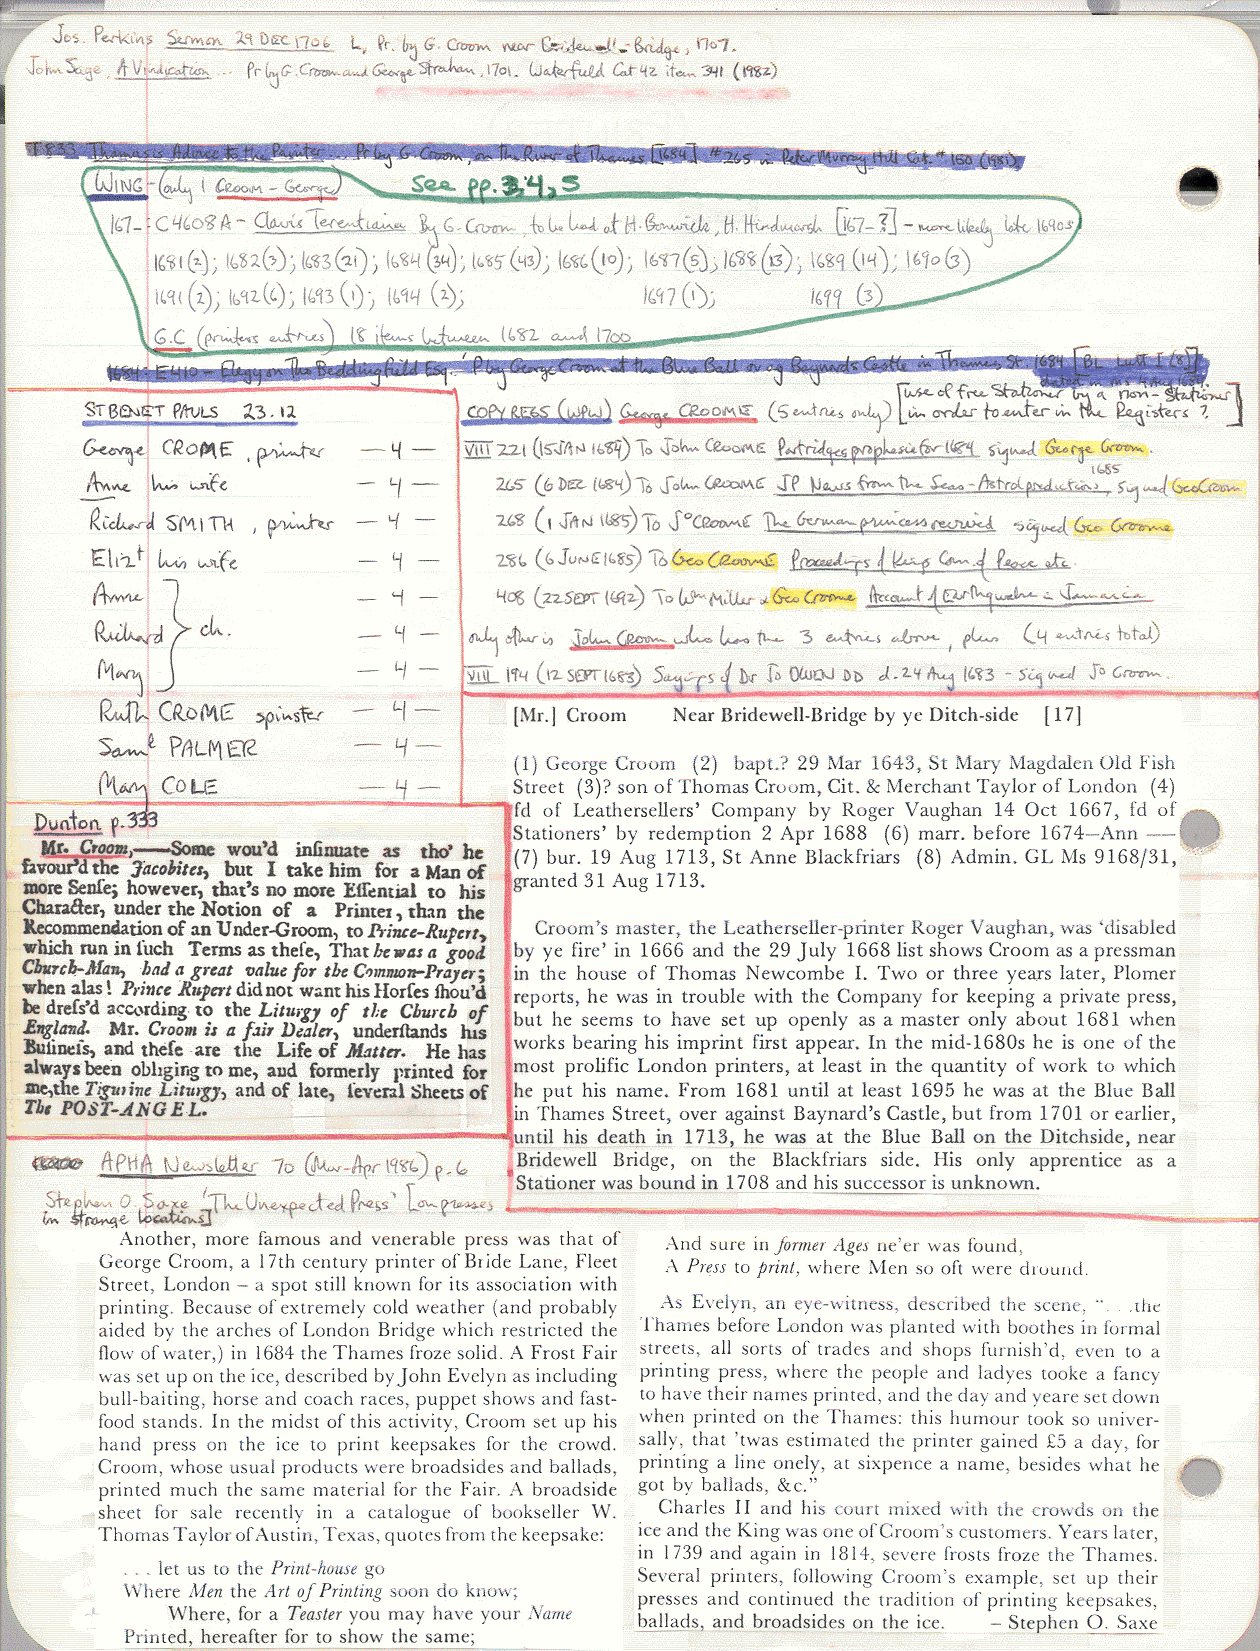 Jos. Perkins Sermon 29 DEC 1706 L, Pr. by G. Croom near Bridewell-Bridge, 1707.
John Sage, A Vindication ... Pr by G. Croom and George Strahan, 1701. Waterfield Cat 42 item 341 (1982)
T833 Thamasis Advice to the Painter... Pr by G. Croom, on the River of Thames [1684] #265 in Peter Murray Hill Cat. # 150 (1981).
WING - (only 1 CROOM - George) See pp. 3, 4, 5
167-: C4608A - Clavis Terentiana By G. Croom, to be had at H. Bonwick, H. Hindmarsh [167-?] - more likely late 1690s
1681 (2); 1682 (3); 1683 (21); 1684 (34); 1685 (43); 1686 (10); 1687 (5); 1688 (13); 1689 (14); 1690 (3)
1691 (2); 1692 (6); 1693 (1); 1694 (2); 1697 (1); 1699 (3)
G.C (printers entries) 18 items between 1682 and 1700
1684: E410 - Elegy on Tho Beddingfield Esq. 'P by George Croom at the Blue Ball ov ag Baynards Castle in Thames St 1684 [BL Lutt I (8)]
dated in ms 4 Aug 1684.
ST BENET PAULS 23.12
George CROME, printer — 4 —
Anne his wife — 4 —
Richard SMITH, printer — 4 —
Elizt his wife — 4 —
Anne — 4 —
Richard } ch. — 4 —
Mary — 4 —
Ruth CROME spinster — 4 —
Saml PALMER — 4 —
Mary COLE — 4 —
COPY REGS (WPW) George CROOME (5 entries only) [use of free Stationer by a non-Stationer
in order to enter in the Registers?]
VIII 221 (15 JAN 1684) To John CROOME Partridges prophesie for 1684 signed George Croom.
265 (6 DEC 1684) To John CROOME JP News from the Seas - Astrol predictions, 1685 signed Geo Croom
268 (1 JAN 1685) To Jo CROOME The German princess revived signed Geo Groome
286 (6 JUNE 1685) To Geo CROOME Proceedings of Kings Com. of Peace etc.
408 (22 SEPT 1692) To Wm Miller & Geo Croome Account of Earthquake in Jamaica
only other is John CROOM who has the 3 entries above, plus (4 entries total)
VIII 194 (12 SEPT 1683) Sayings of Dr Jo OWEN DD d. 24 Aug 1683 - signed Jo Croom.
[Mr.] Croom Near Bridewell-Bridge by ye Ditch-side [17]
(1) George Croom (2) bapt.? 29 Mar 1643, St Mary Magdalen Old Fish
Street (3)? son of Thomas Croom, Cit. & Merchant Taylor of London (4)
fd of Leathersellers' Company by Roger Vaughan 14 Oct 1667, fd of
Stationers' by redemption 2 Apr 1688 (6) marr. before 1674—Ann ——
(7) bur. 19 Aug 1713, St Anne Blackfriars (8) Admin. GL Ms 9168/31,
granted 31 Aug 1713.
Croom's master, the Leatherseller-printer Roger Vaughan, was 'disabled
by ye fire' in 1666 and the 29 July 1668 list shows Croom as a pressman
in the house of Thomas Newcombe I. Two or three years later, Plomer
reports, he was in trouble with the Company for keeping a private press,
but he seems to have set up openly as a master only about 1681 when
works bearing his imprint first appear. In the mid-1680s he is one of the
most prolific London printers, at least in the quantity of work to which
he put his name. From 1681 until at least 1695 he was at the Blue Ball
in Thames Street, over against Baynard's Castle, but from 1701 or earlier,
until his death in 1713, he was at the Blue Ball on the Ditchside, near
Bridewell Bridge, on the Blackfriars side. His only apprentice as a
Stationer was bound in 1708 and his successor is unknown.
Dunton p. 333
Mr. Croom,——Some wou'd insinuate as tho' he
favour'd the Jacobites, but I take him for a Man of
more Sense; however, that's no more Essential to his
Character, under the Notion of a Printer, than the
Recommendation of an Under-Groom, to Prince-Rupert,
which run in such Terms as these, That he was a good
Church-Man, had a great value for the Common-Prayer;
when alas! Prince Rupert did not want his Horses shou'd
be dress'd according to the Liturgy of the Church of
England. Mr. Croom is a fair Dealer, understands his
Business, and these are the Life of Matter. He has
always been obliging to me, and formerly printed for
me, the Tigurine Liturgy, and of late, several Sheets of
The POST-ANGEL.
APHA Newsletter 70 (Mar-Apr 1986) p. 6
Stephen O. Saxe 'The Unexpected Press' [on presses
in strange locations]
Another, more famous and venerable press was that of
George Croom, a 17th century printer of Bride Lane, Fleet
Street, London – a spot still known for its association with
printing. Because of extremely cold weather (and probably
aided by the arches of London Bridge which restricted the
flow of water,) in 1684 the Thames froze solid. A Frost Fair
was set up on the ice, described by John Evelyn as including
bull-baiting, horse and coach races, puppet shows and fast-
food stands. In the midst of this activity, Croom set up his
hand press on the ice to print keepsakes for the crowd.
Croom, whose usual products were broadsides and ballads,
printed much the same material for the Fair. A broadside
sheet for sale recently in a catalogue of bookseller W.
Thomas Taylor of Austin, Texas, quotes from the keepsake:
. . . let us to the Print-house go
Where Men the Art of Printing soon do know;
Where, for a Teaster you may have your Name
Printed, hereafter for to show the same;
And sure in former Ages ne'er was found,
A Press to print, where Men so oft were dround.
As Evelyn, an eye-witness, described the scene, ". . .the
Thames before London was planted with boothes in formal
streets, all sorts of trades and shops furnish'd, even to a
printing press, where the people and ladyes tooke a fancy
to have their names printed, and the day and yeare set down
when printed on the Thames: this humour took so univer-
sally, that 'twas estimated the printer gained £5 a day, for
printing a line onely, at sixpence a name, besides what he
got by ballads, &c."
Charles II and his court mixed with the crowds on the
ice and the King was one of Croom's customers. Years later,
in 1739 and again in 1814, severe frosts froze the Thames.
Several printers, following Croom's example, set up their
presses and continued the tradition of printing keepsakes,
ballads, and broadsides on the ice. – Stephen O. Saxe